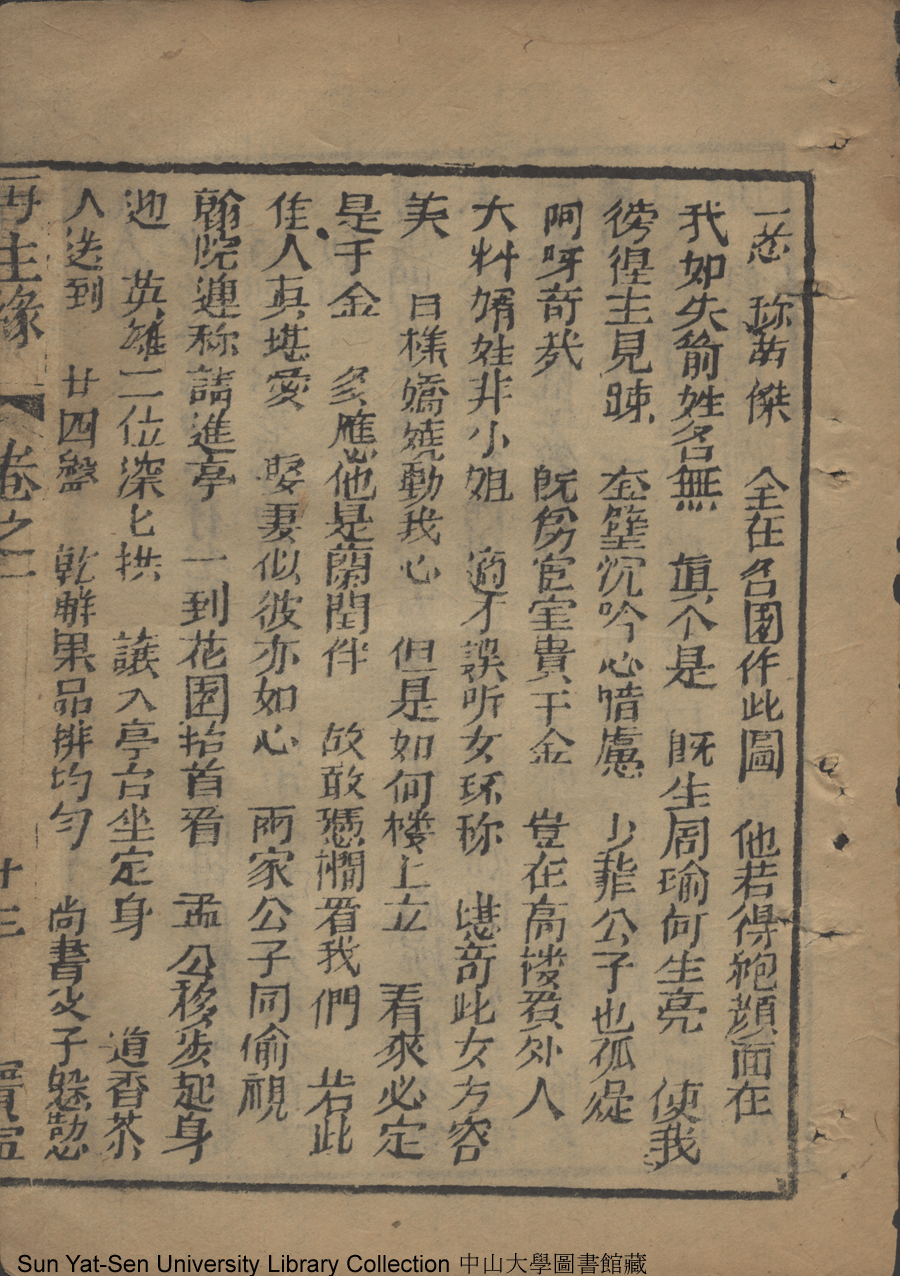 一惹　称英傑　全在名园作此圖　他若得袍顔面在
我如失愉姓名無　真个是　既生周瑜何生亮　使我
徬徨主見踈　奎璧沉吟心惜慮　少華公子也狐疑
阿呀奇㦲　既係宦室貴千金　豈在高楼看外人
大料婿娃非小姐　適才誤听女环称　堪奇此女方容
美　日樣嬌嬈動我心　但是如何楼上立　看來必定
是千金　多應他是蘭閨伴　故敢凴欄看我們　若此
佳人真堪愛　娶妻似彼亦如心　兩家公子同偷視
翰院連称請進亭　一到花园抬首看　孟公移步起身
迎　英雄二位深匕拱　讓入亭台坐定身　道香茶
人送到　廿四盤　乾鮮果品排均匀　尚書父子慇懃
再生緣　卷之二　十三　寶寧
Sun Yat-Sen University Library Collection 中山大學圖書館藏